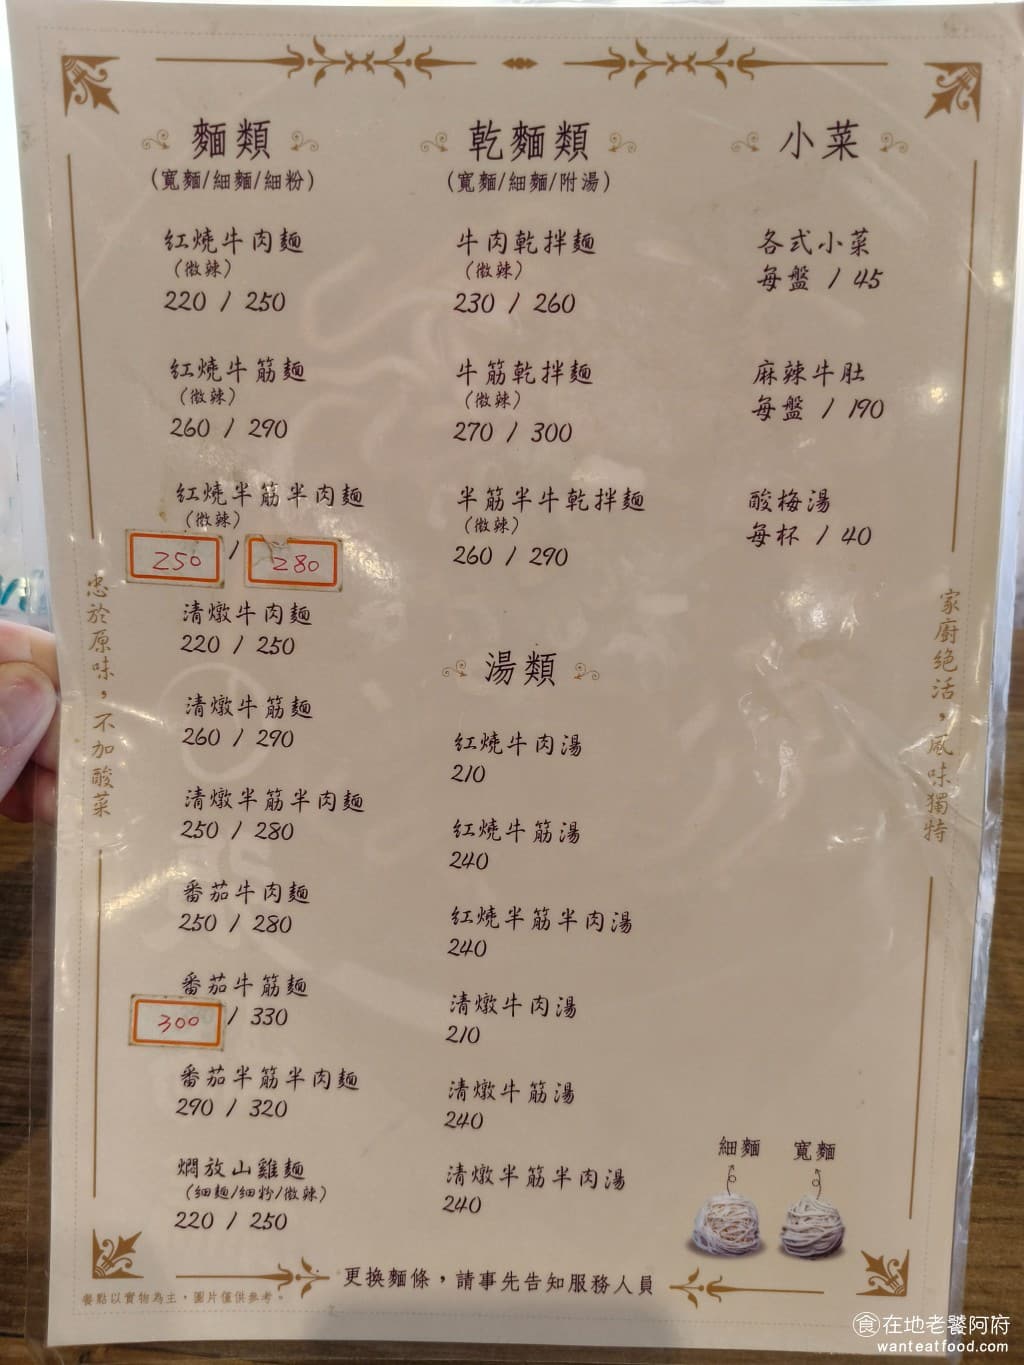 麵類
(寬麵/細麵/細粉)
紅燒牛肉麵
(微辣)
220 / 250
紅燒牛筋麵
(微辣)
260 / 290
紅燒半筋半肉麵
(微辣)
250 / 280
清燉牛肉麵
220 / 250
清燉牛筋麵
260 / 290
清燉半筋半肉麵
250 / 280
番茄牛肉麵
250 / 280
番茄牛筋麵
300 / 330
番茄半筋半肉麵
290 / 320
燜放山雞麵
(細麵/細粉/微辣)
220 / 250
乾麵類
(寬麵/細麵/附湯)
牛肉乾拌麵
(微辣)
230 / 260
牛筋乾拌麵
(微辣)
270 / 300
半筋半牛乾拌麵
(微辣)
260 / 290
湯類
紅燒牛肉湯
210
紅燒牛筋湯
240
紅燒半筋半肉湯
240
清燉牛肉湯
210
清燉牛筋湯
240
清燉半筋半肉湯
240
小菜
各式小菜
每盤 / 45
麻辣牛肚
每盤 / 190
酸梅湯
每杯 / 40
忠於原味，不加酸菜
家廚絕活，風味獨特
細麵 寬麵
更換麵條，請事先告知服務人員
餐點以實物為主，圖片僅供參考。
食在地老饕阿府
wanteatfood.com